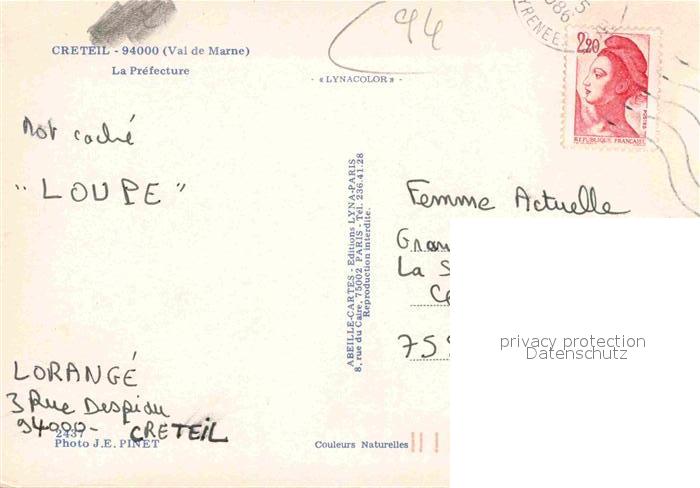 94
CRETEIL - 94000 (Val de Marne)
La Préfecture
- «LYNACOLOR» -
986
PYRENEE
2,20
POSTES
REPUBLIQUE FRANÇAISE
Mot caché
"LOUPE"
ABEILLE-CARTES - Editions LYNA-PARIS
8, rue du Caire, 75002 PARIS - Tél. 236.41.28
Reproduction interdite.
Femme Actuelle
La S
75
privacy protection
Datenschutz
LORANGÉ
3 Rue Despiau
94000- CRETEIL
2437
Photo J.E. PINET
Couleurs Naturelles